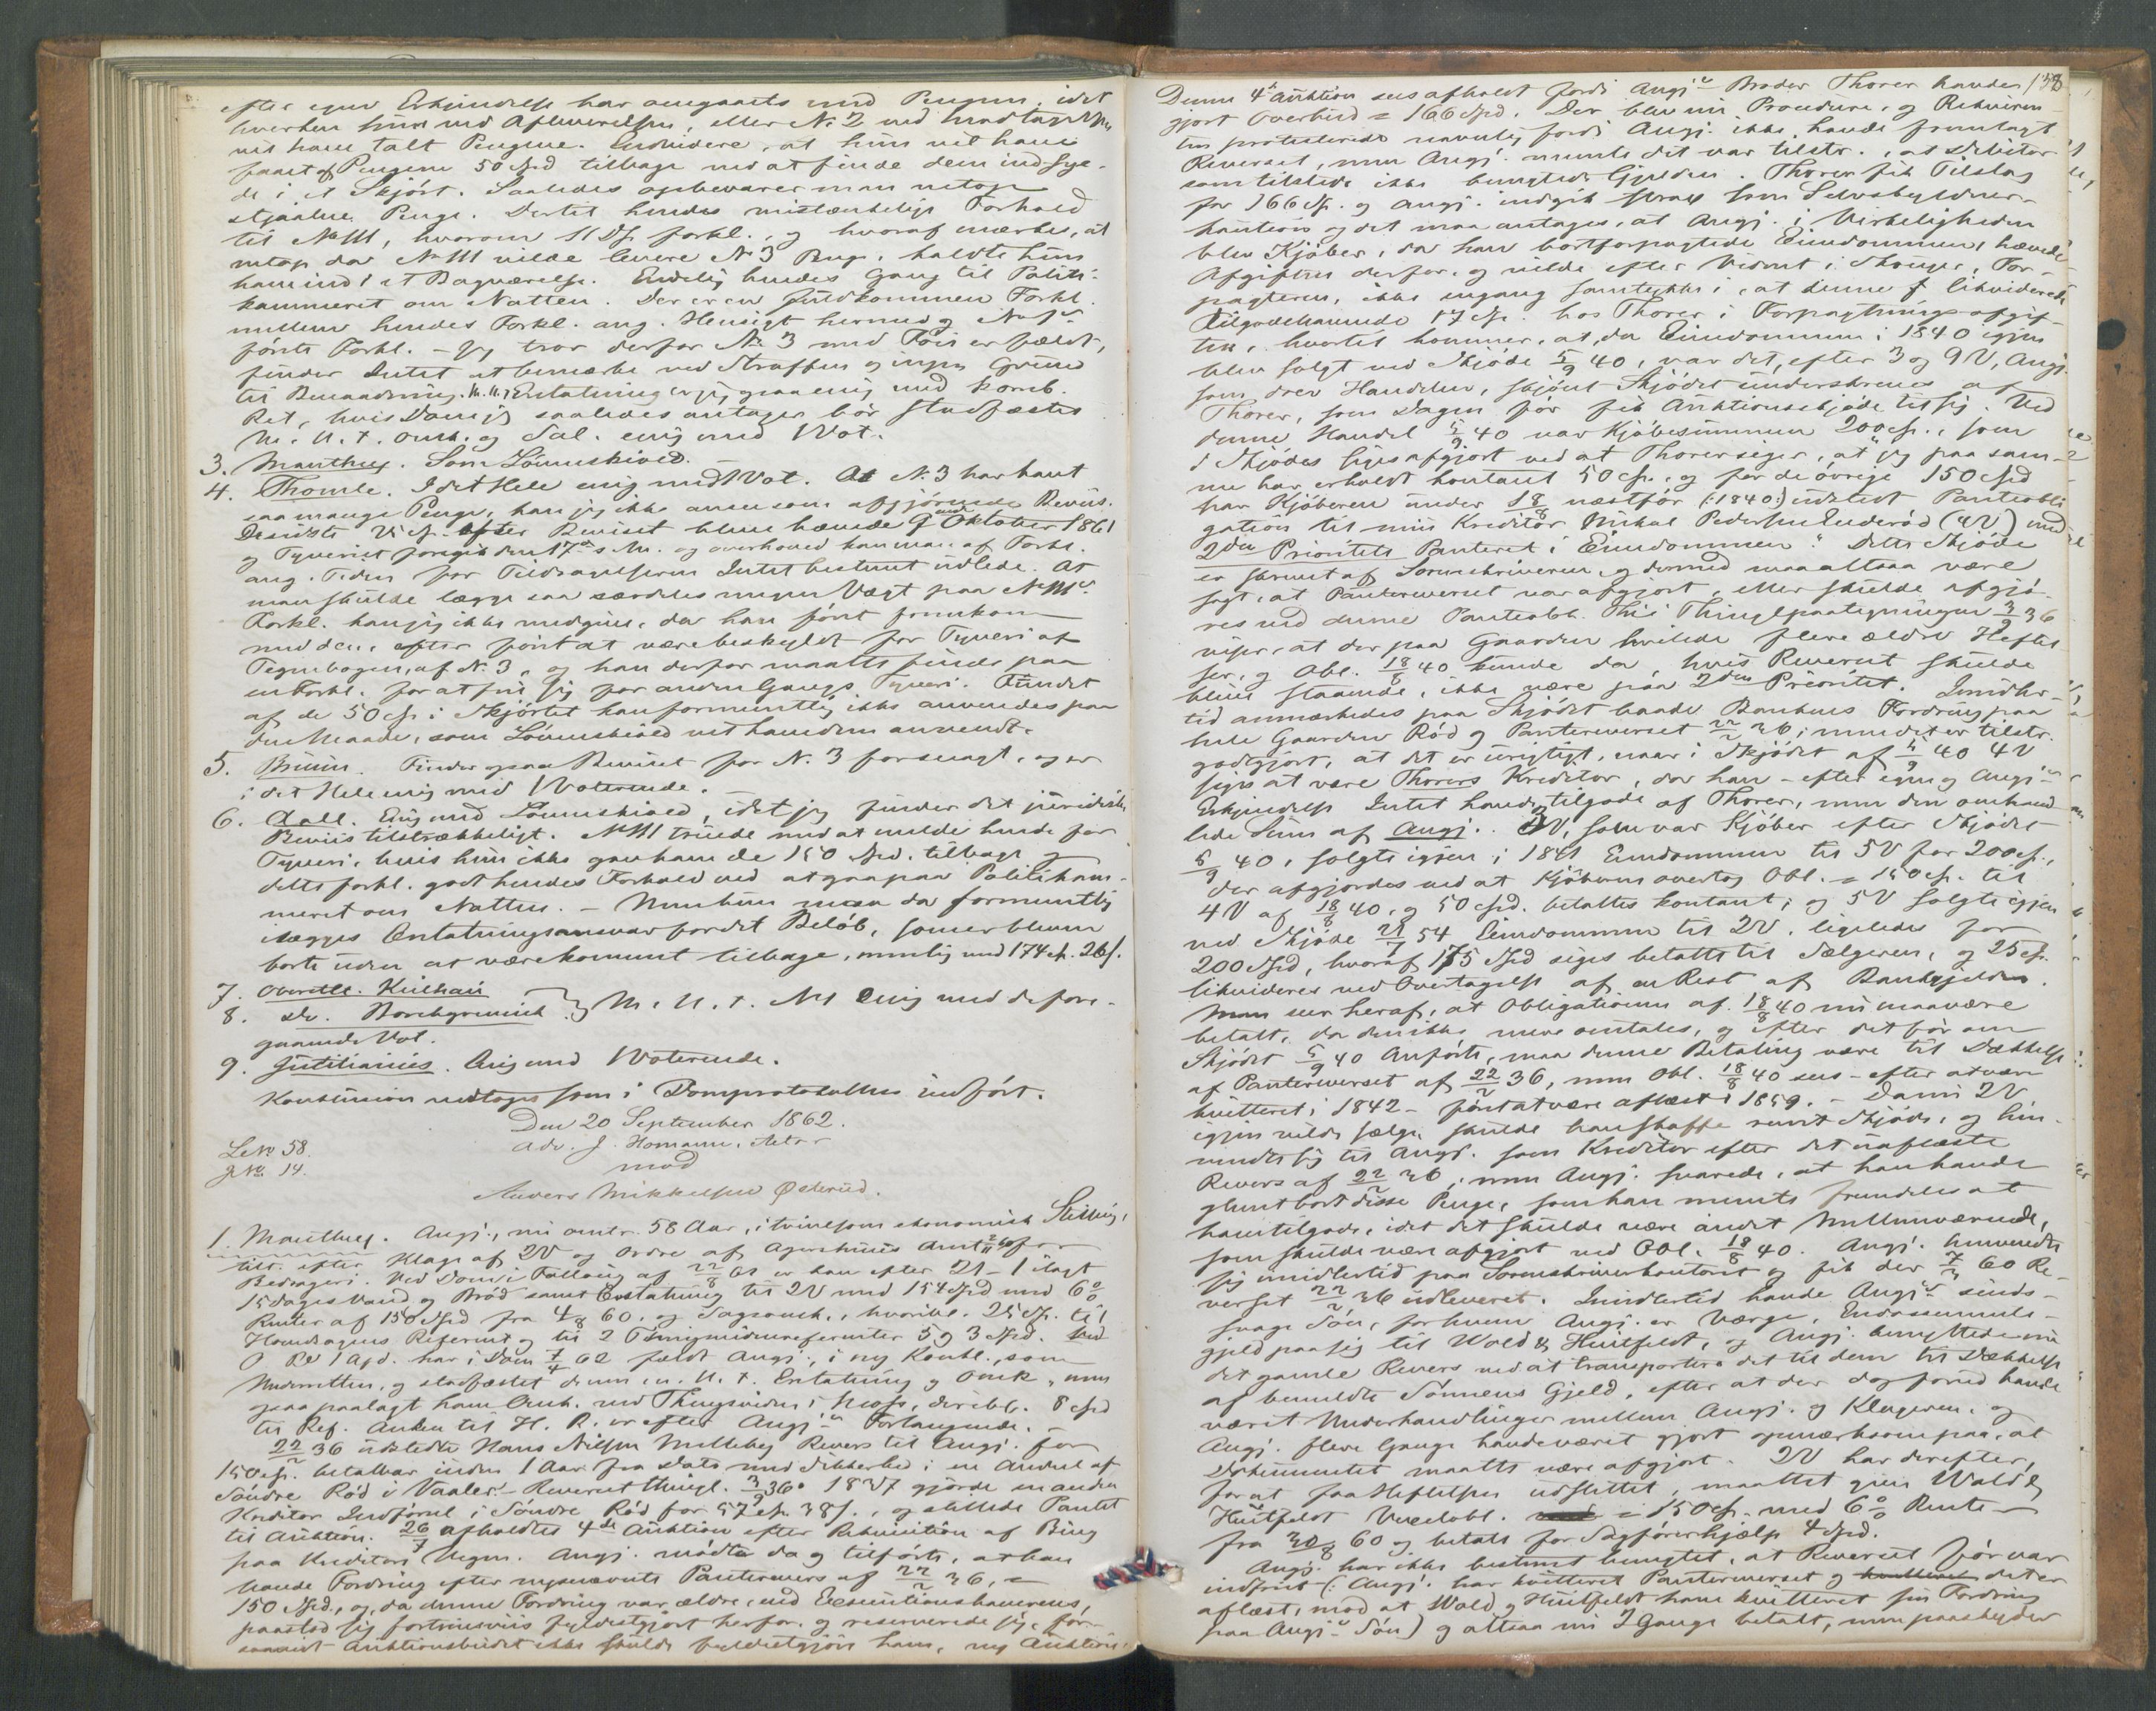 efter egen Erkjendelse har omgaaets med Pengene, idet
hverken hun ved Afleverelsen, eller N. 2 ved Modtagelsen
vil have talt Pengene. Endvidere, at hun vil have
faaet af Pengene 50 Spd tilbage ved at finde dem indsye-
de i et Skjørt. Saaledes opbevarer man netop
stjaalne Penge. Dertil hendes mistænkelige Forhold
til NM, hvorom 11 V fs. forkl., og hvoraf mærkes, at
netop da NM vilde levere N. 3 Penge, kaldte hun
ham ind i et Bagværelse. Endelig hendes Gang til Politi-
kammeret om Natten. Der er en fuldkommen Forkl.
mellem hendes Forkl. ang. Hensigt hermed og
førte Forkl. – Jeg tror derfor N. 3 med Føie er fældt,
finder Intet at bemærke ved Straffen og ingen Grund
til Benaadning. Erstatning er jeg paa enig med komb.
Ret, hvis Dom jeg saaledes antager bør stadfæstes
M. U. t. Omk. og Sal. enig med Vot.
3. Manthey. Som Lövenskiold.
4. Thomle. I det Hele enig med 1 Vot. At N. 3 har havt
saa mange Penge, kan jeg ikke anse som afgjørende Beviis.
Desidste V. efter Beviset blive hævede 9 Oktober 1861
og Tyveriet foregik den 17de s. M. og overhoved kan man af Forkl.
ang. Tiden for Tildragelserne Intet bestemt udlede. At
man skulde lægge saa særdeles megen Vægt paa NMs
Forkl. kan jeg ikke medgive, da han først fremkom
med den, efter først at være beskyldt for Tyveri af
Tegnebogen, af N. 3, og han derfor maatte finde paa
en Forkl. for at frie sig for anden Gangs Tyveri. Fundet
af de 50 Sp. i Skjørtet kan formentlig ikke anvendes paa
den Maade, som Lövenskiold vil have den anvendt.
5. Bruun. Finder ogsaa Beviset for N. 3 forsvagt, og er
i det Hele enig med 1 Voterende.
6. Aall. Enig med Lövenskiold, idet jeg finder det juridiske
Beviis tilstrækkeligt. NM truede med at melde hende for
Tyveri, hvis hun ikke gav ham de 150 Spd. tilbage og
dette forkl. godt hendes Forhold ved at gaa paa Politikam-
meret om Natten. – Men hun maa da formentlig
ilægges Erstatningsansvar for det Beløb, som er bleven
borte uden at være kommet tilbage, nemlig med 174 sp. 26 s.
7. Oberstlt. Keilhau
8. Do. Borchgrevink } M. U. t. N1 Enig med de fore-
gaaende Vot.
9. Justitiarius. Enig med 1 Voterende.
Konklusion vedtoges som i Domsprotokollen indført.
Den 20 September 1862.
L. No 58. Adv. J. Homann, Aktor
J. No 14. mod
Anders Mikkelsen Østerud.
1. Manthey. Angj., nu omtr. 58 Aar, i tvivlsom økonomisk Stilling,
tilt. efter Klage af 2V og Ordre af Agershuus Amt for
Bedrageri. Ved Dom i Follaug af 22/8 61 er han efter 21-1 ilagt
15 Dages Vand og Brød samt Erstatning til 2V med 154 Spd med 6%
Renter af 150 Spd fra 4/8 60, og Sagsomk., hvoribl. 25 Sp. til
Hovedsagens Referent og til 2 Thingvidnereferenter 5 og 3 Spd. Ved
O Ret 1 Afd. har i Dom 7/4 62 fældt Angj., i ny Konkl., som
Underretten, og stadfæstet denne m. H. t. Erstatning og Omk., men
ogsaa paalagt ham Omk. ved Thingsvidne i Moss, deribl. 8 Spd
til Ref. Anken til H. R. er efter Angj.s Forlangende. –
22/2 36 udstedte Hans Nilsen Melleby Revers til Angj. for
150 Sp. betalbar inden 1 Aar fra Dato med Sikkerhed i en Andeel af
Søndre Rød i Vaaler. – Reverset thingl. 3/9 36. 1837 gjorde en anden
Kreditor Indførsel i Søndre Rød for 57 Sp. 38 s., og stillede Pantet
til Auktion. 26/7 afholdtes 4de Auktion efter Rekvisition af Bing
paa Kreditors Vegne. Angj. mødte da og tilførte, at han
havde Fordring efter nysnævnte Panterevers af 22/2 36, =
150 Spd., og, da denne Fordring var ældre, end Executionshaverens,
paastod sig fortrinsviis fyldestgjort herfor, og reserverede sig, for-
saavidt Auktionsbudet ikke skulde fyldestgjøre ham, ny Auktion.
138
Denne 4de Auktion sees afholdt fordi Angj.s Broder Thorer havde
gjort Overbud = 166 Spd. Der blev nu Procedure, og Rekviren-
ten protesterede navnlig fordi Angj. ikke havde fremlagt
Reverset, men Angj. mente det var tilstr., at Debitor
som tilstede ikke benegtede Gjelden. Thorer fik Tilslag
for 166 Sp. og Angj. indgik strax som Selvskyldner-
kaution og det maa antages, at Angj. i Virkeligheden
blev Kjøber, da han bortforpagtede Eiendommen, hævede
Afgiften derfor, og vilde efter Vidnet i Skouge, For-
pagteren, ikke engang samtykke i, at denne likviderede
Tilgodehavende 17 Sp. hos Thorer i Forpagtningsafgif-
ten, hvortil kommer, at, da Eiendommen i 1840 igjen
blev solgt ved Skjøde 5/9 40, var det, efter 3 og 9 V, Angj.
som drev Handelen, skjønt Skjødet underskreves af
Thorer, som Dagen før fik Auktionsskjøde til sig. Ved
denne Handel 5/9 40 var Kjøbesummen 200 Sp., som
i Skjødet siges afgjort ved at Thorer siger, at "jeg paa sam-
me har erholdt kontant 50 Sp., og for de øvrige 150 Spd
har Kjøberen under 18/8 næstfør (: 1840:) udstedt Panteobli
gation til min Kreditor Mikal Pedersen Enderød (4V) med
2den Prioritets Panteret i Eiendommen." Dette Skjøde
er skrevet af Sorenskriveren, og dermed maa altsaa være
sagt, at Pantereverset var afgjort, eller skulde afgjø-
res ved denne Panteobl. Thi i Thinglpaategningen 3/9 36
vises, at der paa Gaarden hvilede flere ældre Heftel
ser, og Obl. 18/8 40 kunde da, hvis Reverset skulde
blive staaende, ikke være paa 2den Prioritet. Imidler-
tid anmærkedes paa Skjødet baade Bankens Fordring paa
hele Gaarden Rød og Pantereverset 22/2 36; men det er tilstr.
godtgjort, at det er urigtigt, naar i Skjødet af 5/9 40 4V
siges at være Thorers Kreditor, da han – efter egen og Angj.s
Erkjendelse Intet havde tilgode af Thorer, men den omhand-
lede Sum af Angj. 3V, som var Kjøber efter Skjødet
5/9 40, solgte igjen i 1841 Eiendommen til 5V for 200 Sp.,
der afgjordes ved at Kjøberen overtog Obl. = 150 Sp. til
4V af 18/8 40, og 50 Spd. betaltes kontant; og 5V solgte igjen
ved Skjøde 21/7 54 Eiendommen til 2V, ligeledes for
200 Spd, hvoraf 175 Spd siges betalte til Sælgeren, og 25 Sp.
likvideres ved Overtagelse af en Rest af Bankgjelden.
Man seer heraf, at Obligationen af 18/8 40 nu maa være
betalt, da den ikke mere omtales, og efter det før om
Skjødet 5/9 40 Anførte, maa denne Betaling være til Dækkelse
af Pantereverset af 22/2 36, men Obl. 18/8 40 sees – efter at være
kvitteret i 1842 – først at være aflæst i 1859. – Da nu 2V
igjen vilde sælge, skulde han skaffe reent Skjøde, og hen-
vendte sig til Angj. som Kreditor efter det uaflæste
Revers af 22/2 36; men Angj. svarede, at han havde
glemt bort disse Penge, som han mente fremdeles at
have tilgode, idet det skulde være andet Mellemværende,
som skulde være afgjort ved Obl. 18/8 40. Angj. henvendte
sig imidlertid paa Sorenskriverkontoret og fik der 7/3 60 Re-
verset 22/2 36 udleveret. Imidlertid havde Angj.s sinds-
svage Søn, for hvem Angj. er Værge, Endossements-
gjeld paa sig til Wold & Huitfeldt, og Angj. benyttede nu
det gamle Revers ved at transportere det til dem til Dækkelse
af bemeldte Sønnens Gjeld, efter at der dog forud havde
været Underhandlinger mellem Angj. og Klageren, og
Angj. flere Gange havde været gjort opmærksom paa, at
Dokumentet maatte være afgjort. 2V har derefter,
for at faa Heftelsen udslettet, maattet give Wold &
Huitfeldt Vexelobl. = 150 Sp. med 6% Rente
fra 60 og betale for Sagførerhjælp 4 Spd.
Angj. har ikke bestemt benegtet, at Reverset før var
indfriet (: Angj. har kvitteret Pantereverset og det er
aflæst, mod at Wold & Huitfeldt have kvitteret sin Fordring
paa Angj.s Søn) og altsaa nu 2 Gange betalt, men paaskyder